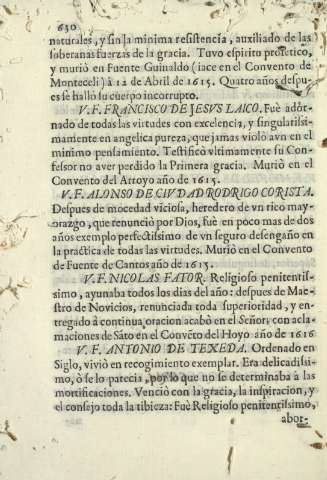 630
naturales, y sin la minima resistencia, auxiliado de las
soberanas fuerzas de la gracia. Tuvo espiritu profetico,
y murió en Fuente Guinaldo (iace en el Convento de
Monteceli) à 12 de Abril de 1615. Quatro años despu-
es se hallò su cuerpo incorrupto.
V. F. FRANCISCO DE JESVS LAICO. Fuè ador-
nado de todas las virtudes con excelencia, y singularissi-
mamente en angelica pureza, que jamas violò avn en el
minimo pensamiento. Testificò vltimamente su Con-
fessor no aver perdido la Primera gracia. Muriò en el
Convento del Arroyo año de 1615.
V. F. ALONSO DE CIVDAD RODRIGO CORISTA.
Despues de mocedad viciosa, heredero de vn rico may-
orazgo, que renunciò por Dios, fuè en poco mas de dos
años exemplo perfectissimo de vn seguro desengaño en
la practica de todas las virtudes. Murió en el Convento
de Fuente de Cantos año de 1615.
V. F. NICOLAS FATOR. Religioso penitentis-
simo, ayunaba todos los dias del año: despues de Mae-
stro de Novicios, renunciada toda superioridad, y en-
tregado à continua oracion acabò en el Señor, con acla-
maciones de Sãto en el Convẽto del Hoyo año de 1616
V. F. ANTONIO DE TEXEDA. Ordenado en
Siglo, viviò en recogimiento exemplar. Era delicadissi-
mo, ò se lo parecia, por lo que no se determinaba à las
mortificaciones. Venciò con la gracia, la inspiracion, y
el consejo toda la tibieza: Fuè Religioso penitentissimo,
abor-